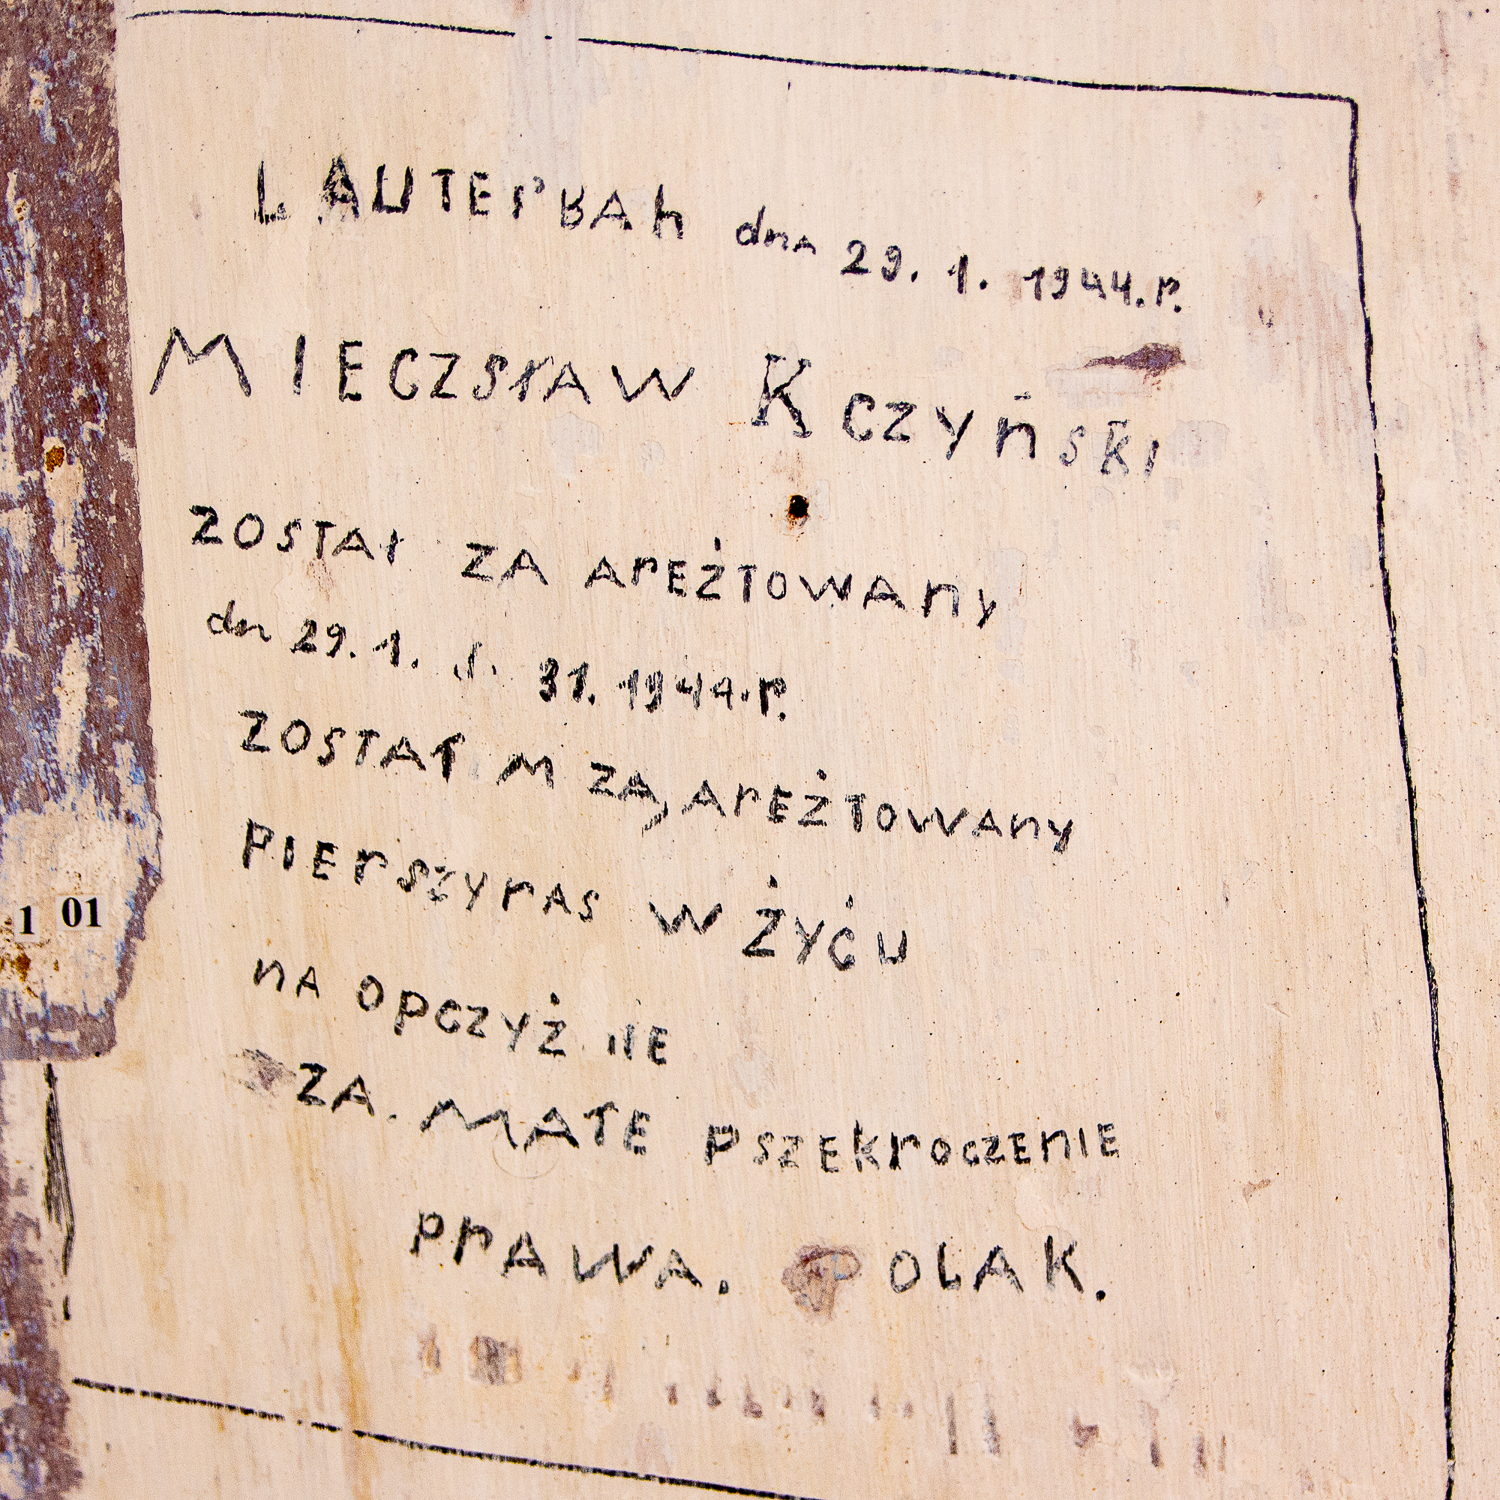 LAUTERBAH dna 29. 1. 1944.r.
MIECZSŁAW KCZYŃSKI
ZOSTAŁ ZA AREŻTOWANY
dn 29. 1. 31. 1944.r.
ZOSTAŁ M ZA, AREŻTOWANY
PIERSZYRAS W ŻYĆU
NA OPCZYŻNE
ZA. MAŁE PSZEKROCZENIE
PRAWA. POLAK.
1 01